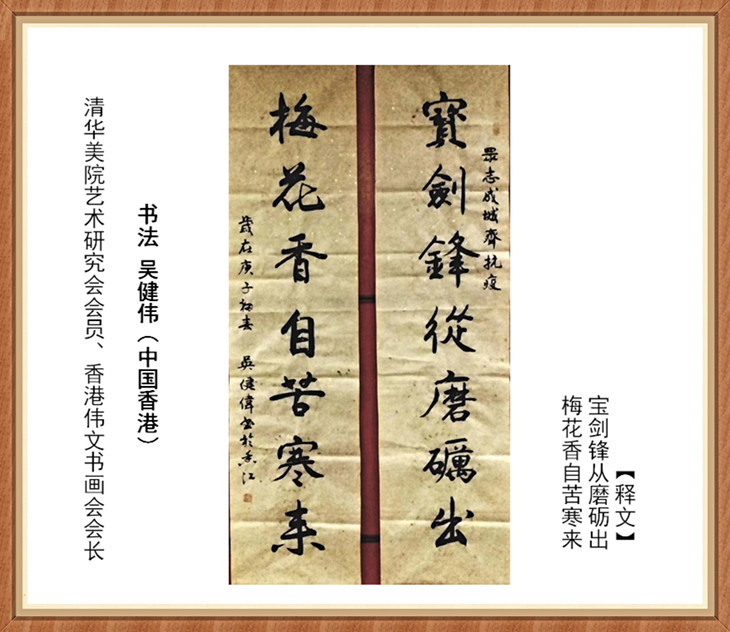 【释文】
宝剑锋从磨砺出
梅花香自苦寒来
眾志成城齊抗疫
寶劍鋒從磨礪出
梅花香自苦寒来
歲在庚子初春 吳健偉書於香江
书法 吴健伟（中国香港）
清华美院艺术研究会会员、香港伟文书画会会长